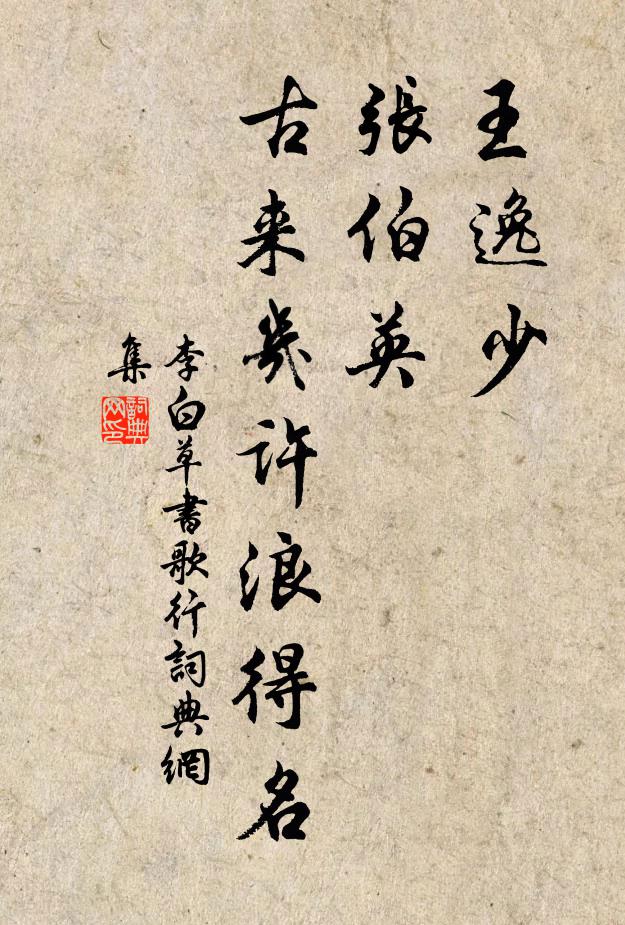 王逸少
張伯英
古来幾許浪得名
李白草書歌行詞典網
集
詞典
网印